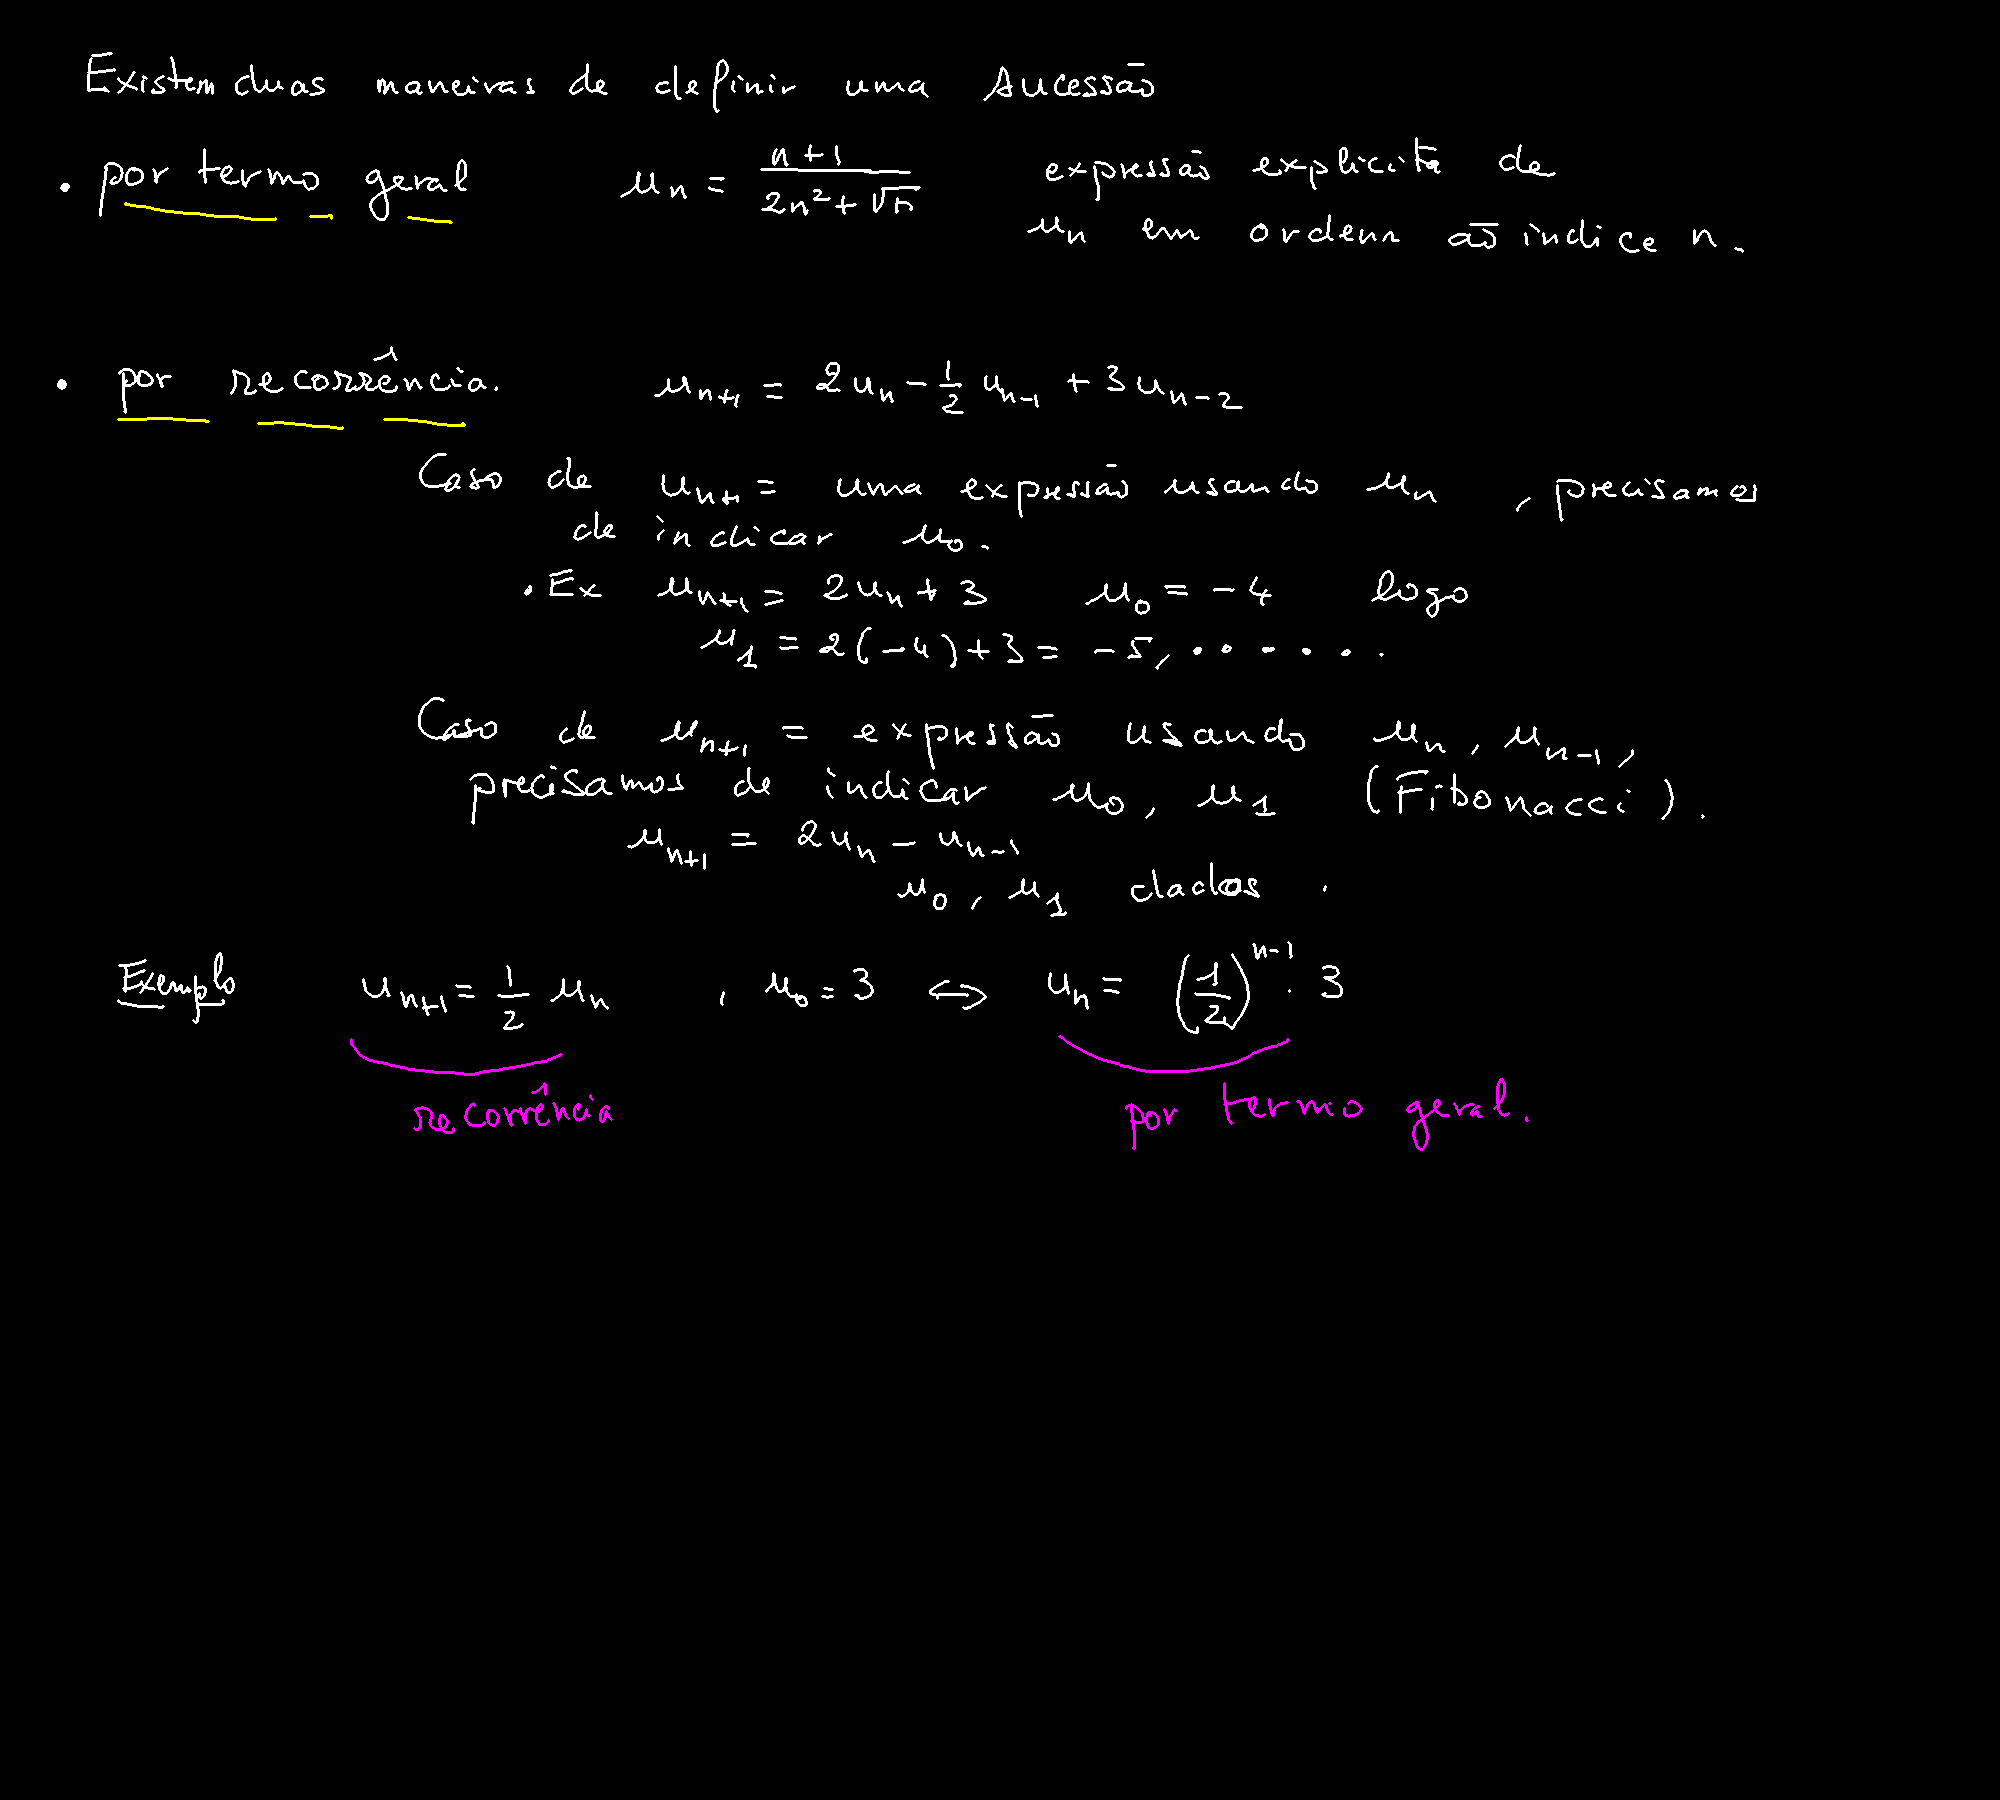 Existem duas maneiras de definir uma sucessão
• por termo geral u_n = (n+1)/(2n² + √n) expressão explicita de
u_n em ordem ao indice n.
• por recorrência. u_{n+1} = 2u_n - 1/2 u_{n-1} + 3u_{n-2}
Caso de u_{n+1} = uma expressão usando u_n , precisamos
de indicar u_0.
• Ex u_{n+1} = 2u_n + 3 u_0 = -4 logo
u_1 = 2(-4)+3 = -5, . . . . . .
Caso de u_{n+1} = expressão usando u_n, u_{n-1},
precisamos de indicar u_0, u_1 (Fibonacci).
u_{n+1} = 2u_n - u_{n-1}
u_0, u_1 dados.
Exemplo u_{n+1} = 1/2 u_n , u_0 = 3 ⇔ u_n = (1/2)^{n-1} . 3
recorrência por termo geral.